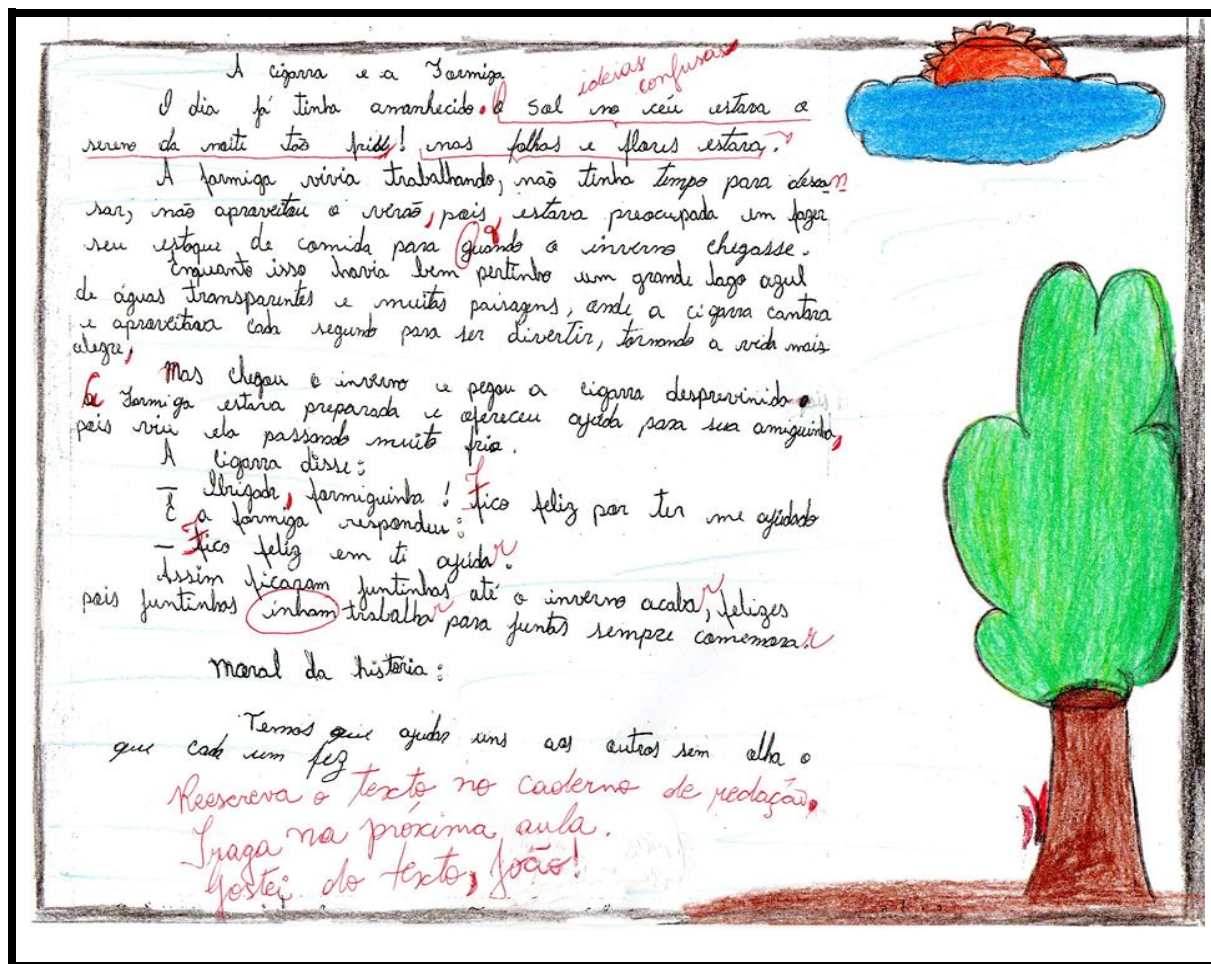 A cigarra e a Formiga
ideias confusas
O dia já tinha amanhecido. O Sol no céu estava o
sereno da noite tão ! nas folhas e flores estava.
A formiga vivia trabalhando, não tinha tempo para descan
sar, não aproveitou o verão, pois estava preocupada em fazer
seu estoque de comida para quando o inverno chegasse.
Enquanto isso havia bem pertinho um grande lago azul
de águas transparentes e muitas paisagens, onde a cigarra cantava
e aproveitava cada segundo para ser divertir, tornando a vida mais
alegre,
Mas chegou o inverno e pegou a cigarra desprevinida
a Formiga estava preparada e ofereceu ajuda para sua amiguinha,
pois viu ela passando muito frio.
A cigarra disse:
— Obrigada, formiguinha! Fico feliz por ter me ajudado
E a formiga respondeu:
— Fico feliz em ti ajudar.
Assim ficaram juntinhas até o inverno acabar, felizes
pois juntinhas inham trabalhar para juntas sempre comemorar.
Moral da história:
Temos que ajudar uns aos outros sem olha o
que cada um fez
Reescreva o texto no caderno de redação.
Traga na próxima aula.
Gostei do texto, João!